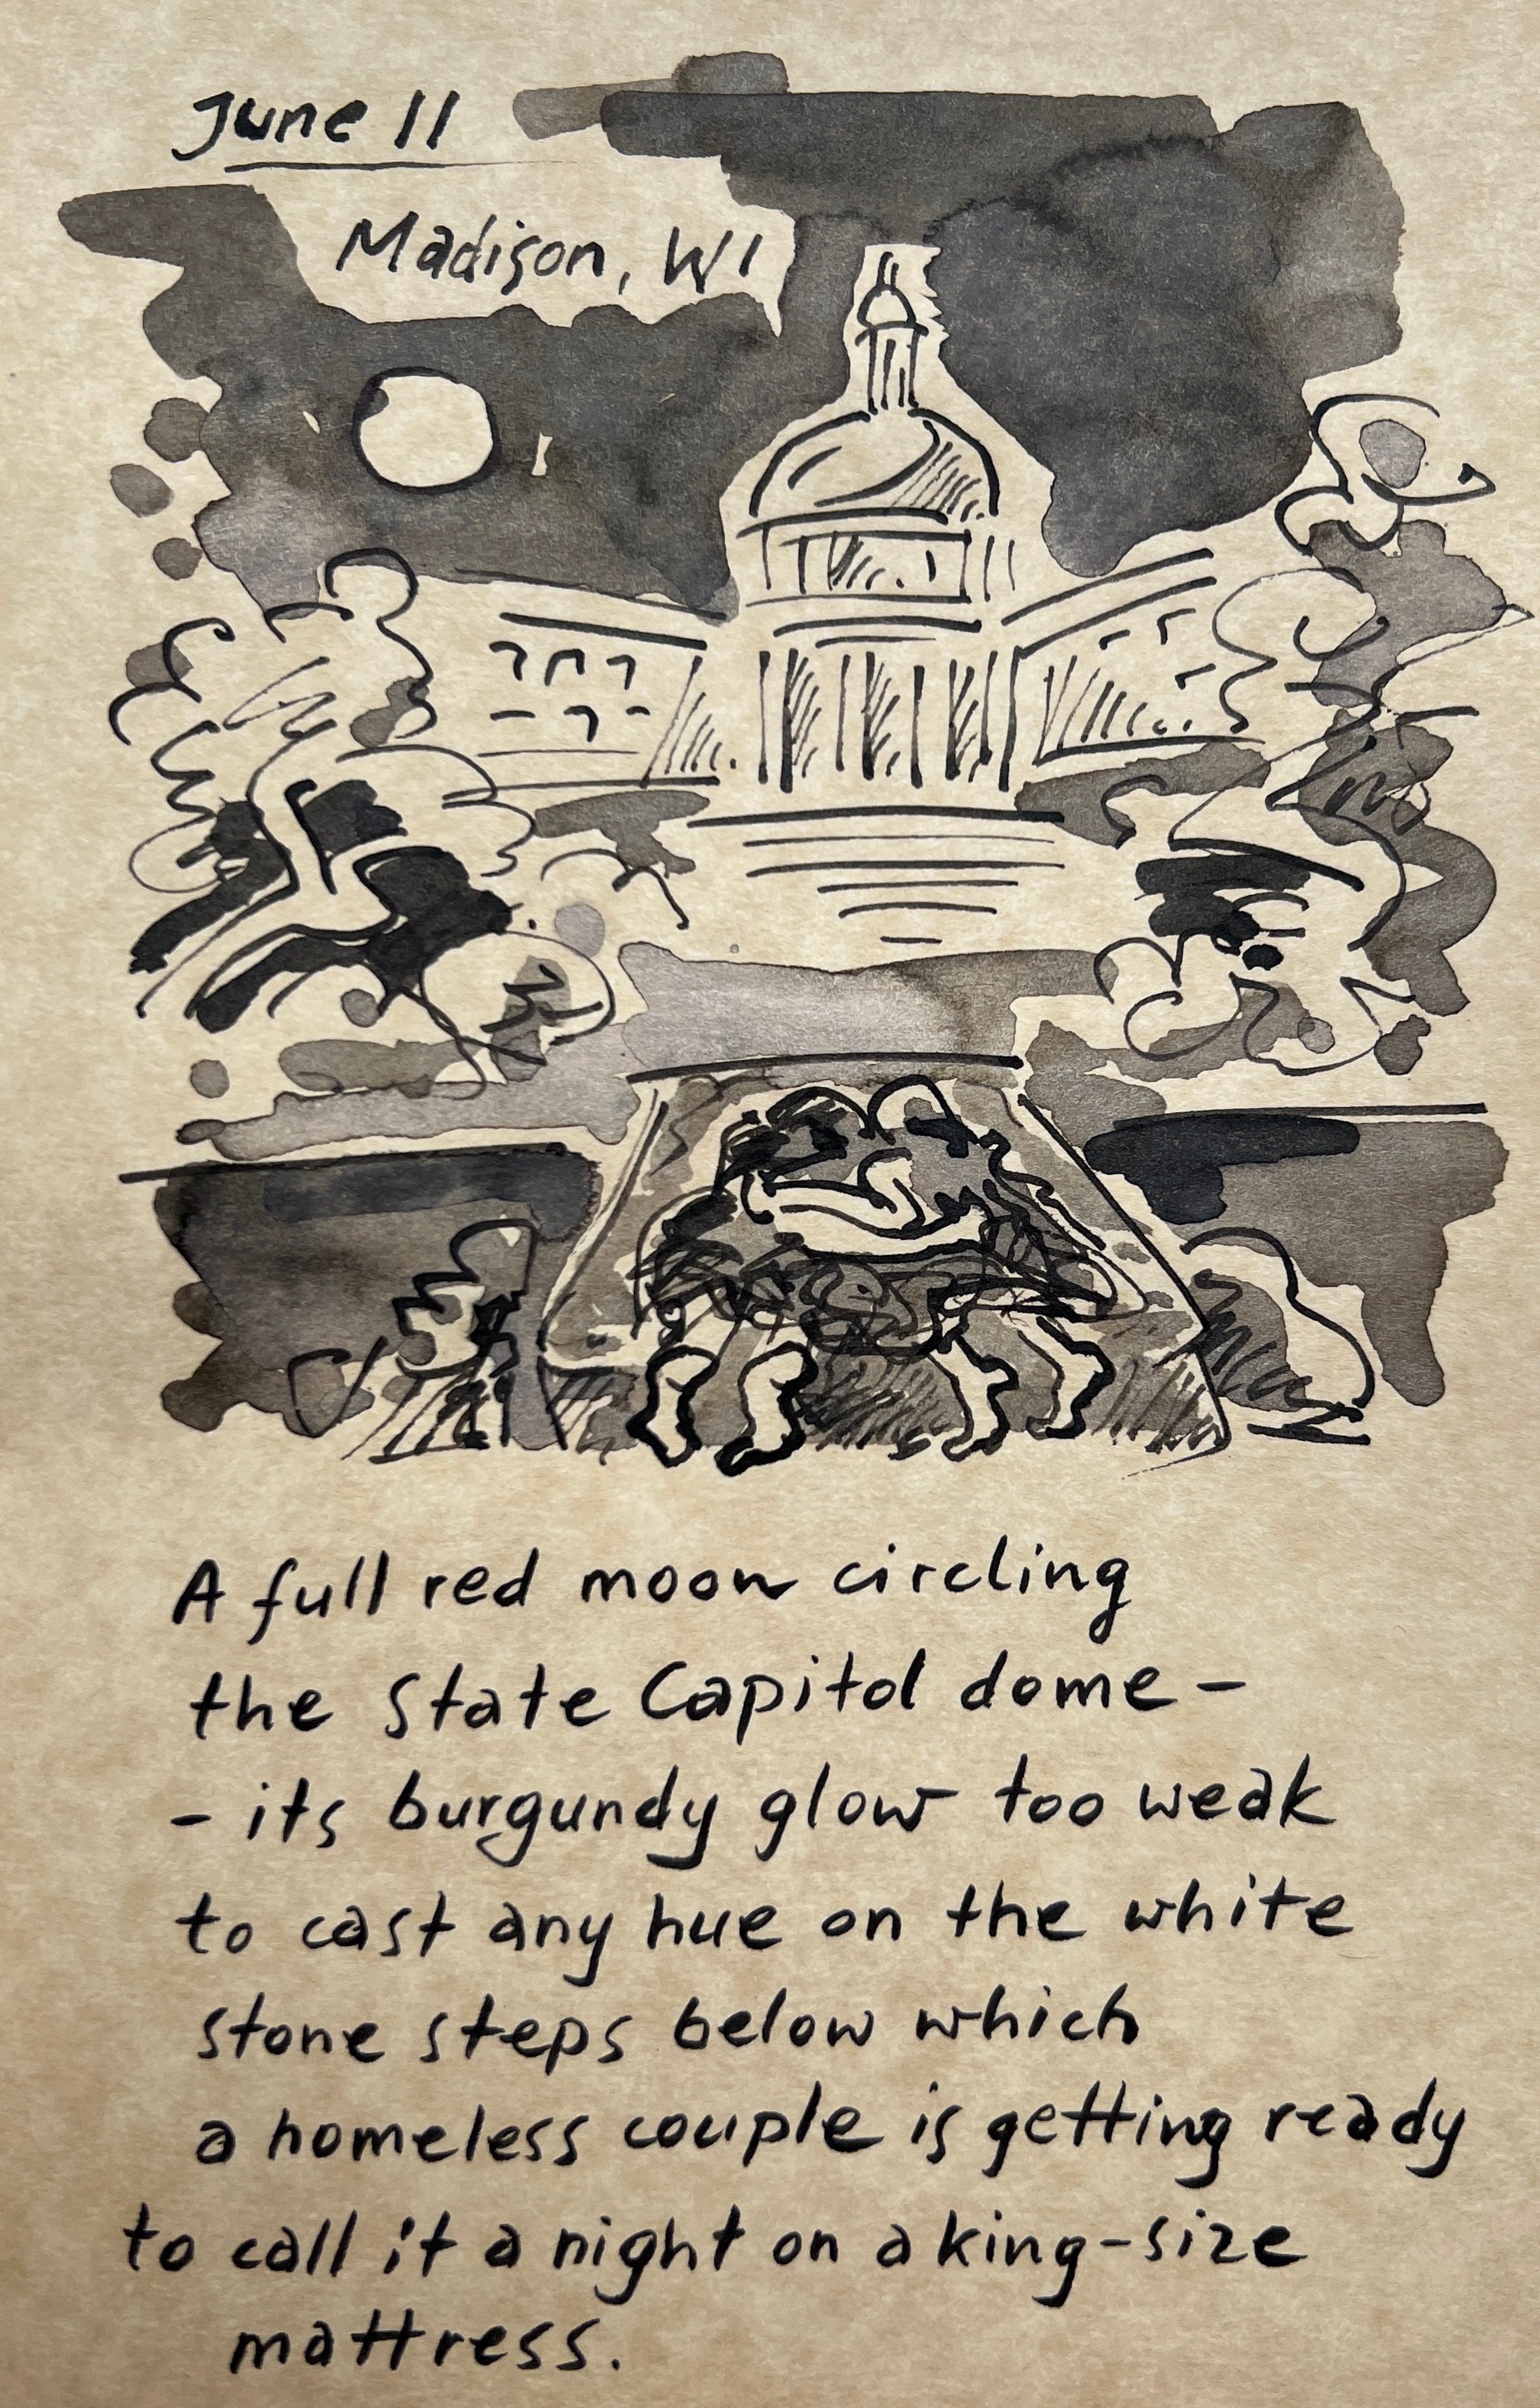 June 11
Madison, WI
A full red moon circling
the State Capitol dome –
– its burgundy glow too weak
to cast any hue on the white
stone steps below which
a homeless couple is getting ready
to call it a night on a king-size
mattress.